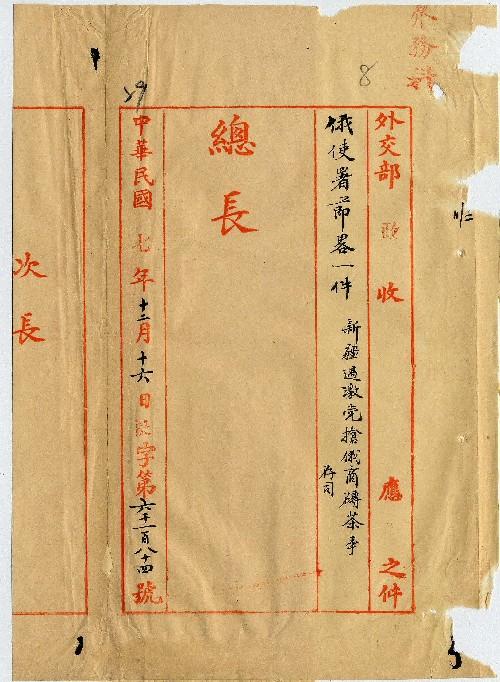 外交部 收 應 之件
俄使署節畧一件 新疆過激党搶俄商磚茶事
存司
8
總長
中華民國七年十二月十六日字第六千一百八十四號
次長